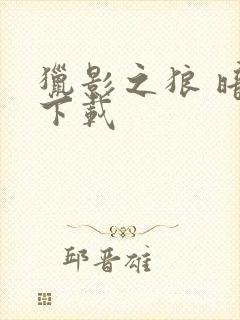 獵影之狼 暗
下載
邱晋雄